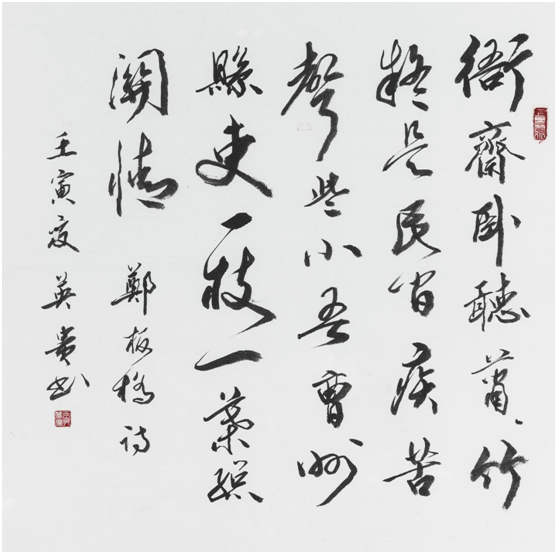 衙齋卧聽蕭〻竹
疑是民間疾苦
聲些小吾曹州
縣吏一枝一葉總
關情 鄭板橋詩
壬寅夏 英貴书